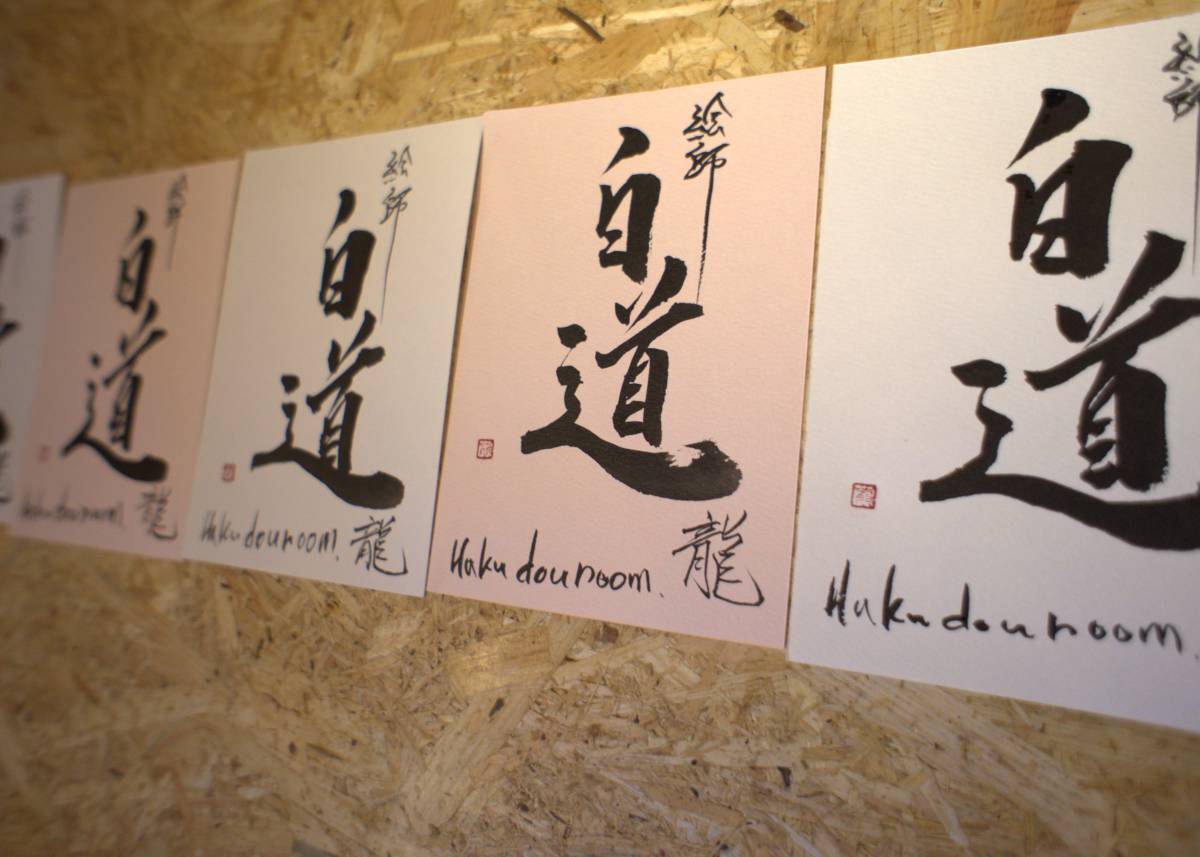 絵師
白道
Hakudouroom.
龍
絵師
白道
Hakudouroom.
龍
絵師
白道
Hakudouroom.
龍
絵師
白道
Hakudouroom.